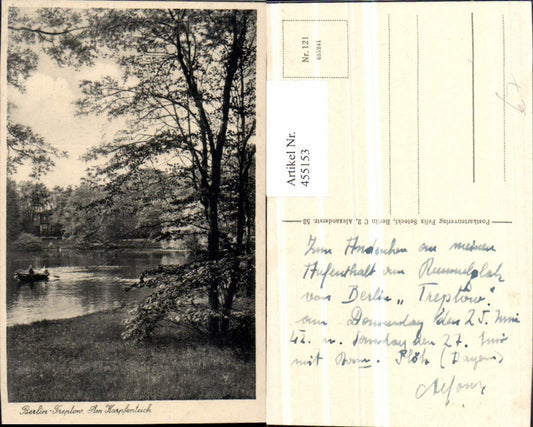 Berlin-Treptow. Am Karpfenteich
Nr. 121
635941
Artikel Nr.
455153
Postkartenverlag Felix Setecki, Berlin C 2, Alexanderstr. 53
Zum Andenken an meinen
Aufenthalt am Rummelplatz
von Berlin „Treptow"
am Donnerstag den 25. Juni
42. u. Samstag den 27. Juni
mit